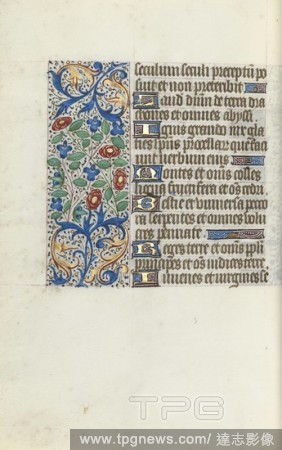 seculum seculi preceptum po
suit et non preteribit
Laud dnm de terra dra
cones et omnes abyssi
Ignis grando nix gla
cies spus procellar que faci
unt verbum eius
Montes et omis colles
ligna fructifera et os cedri
Bestie et universa peco
ra serpentes et omnes volu
cres pennate
Reges terre et omis ppli
principes et os iudices terre
Iuvenes et virgines se
TPG
www.tpgnews.com/ 達志影像